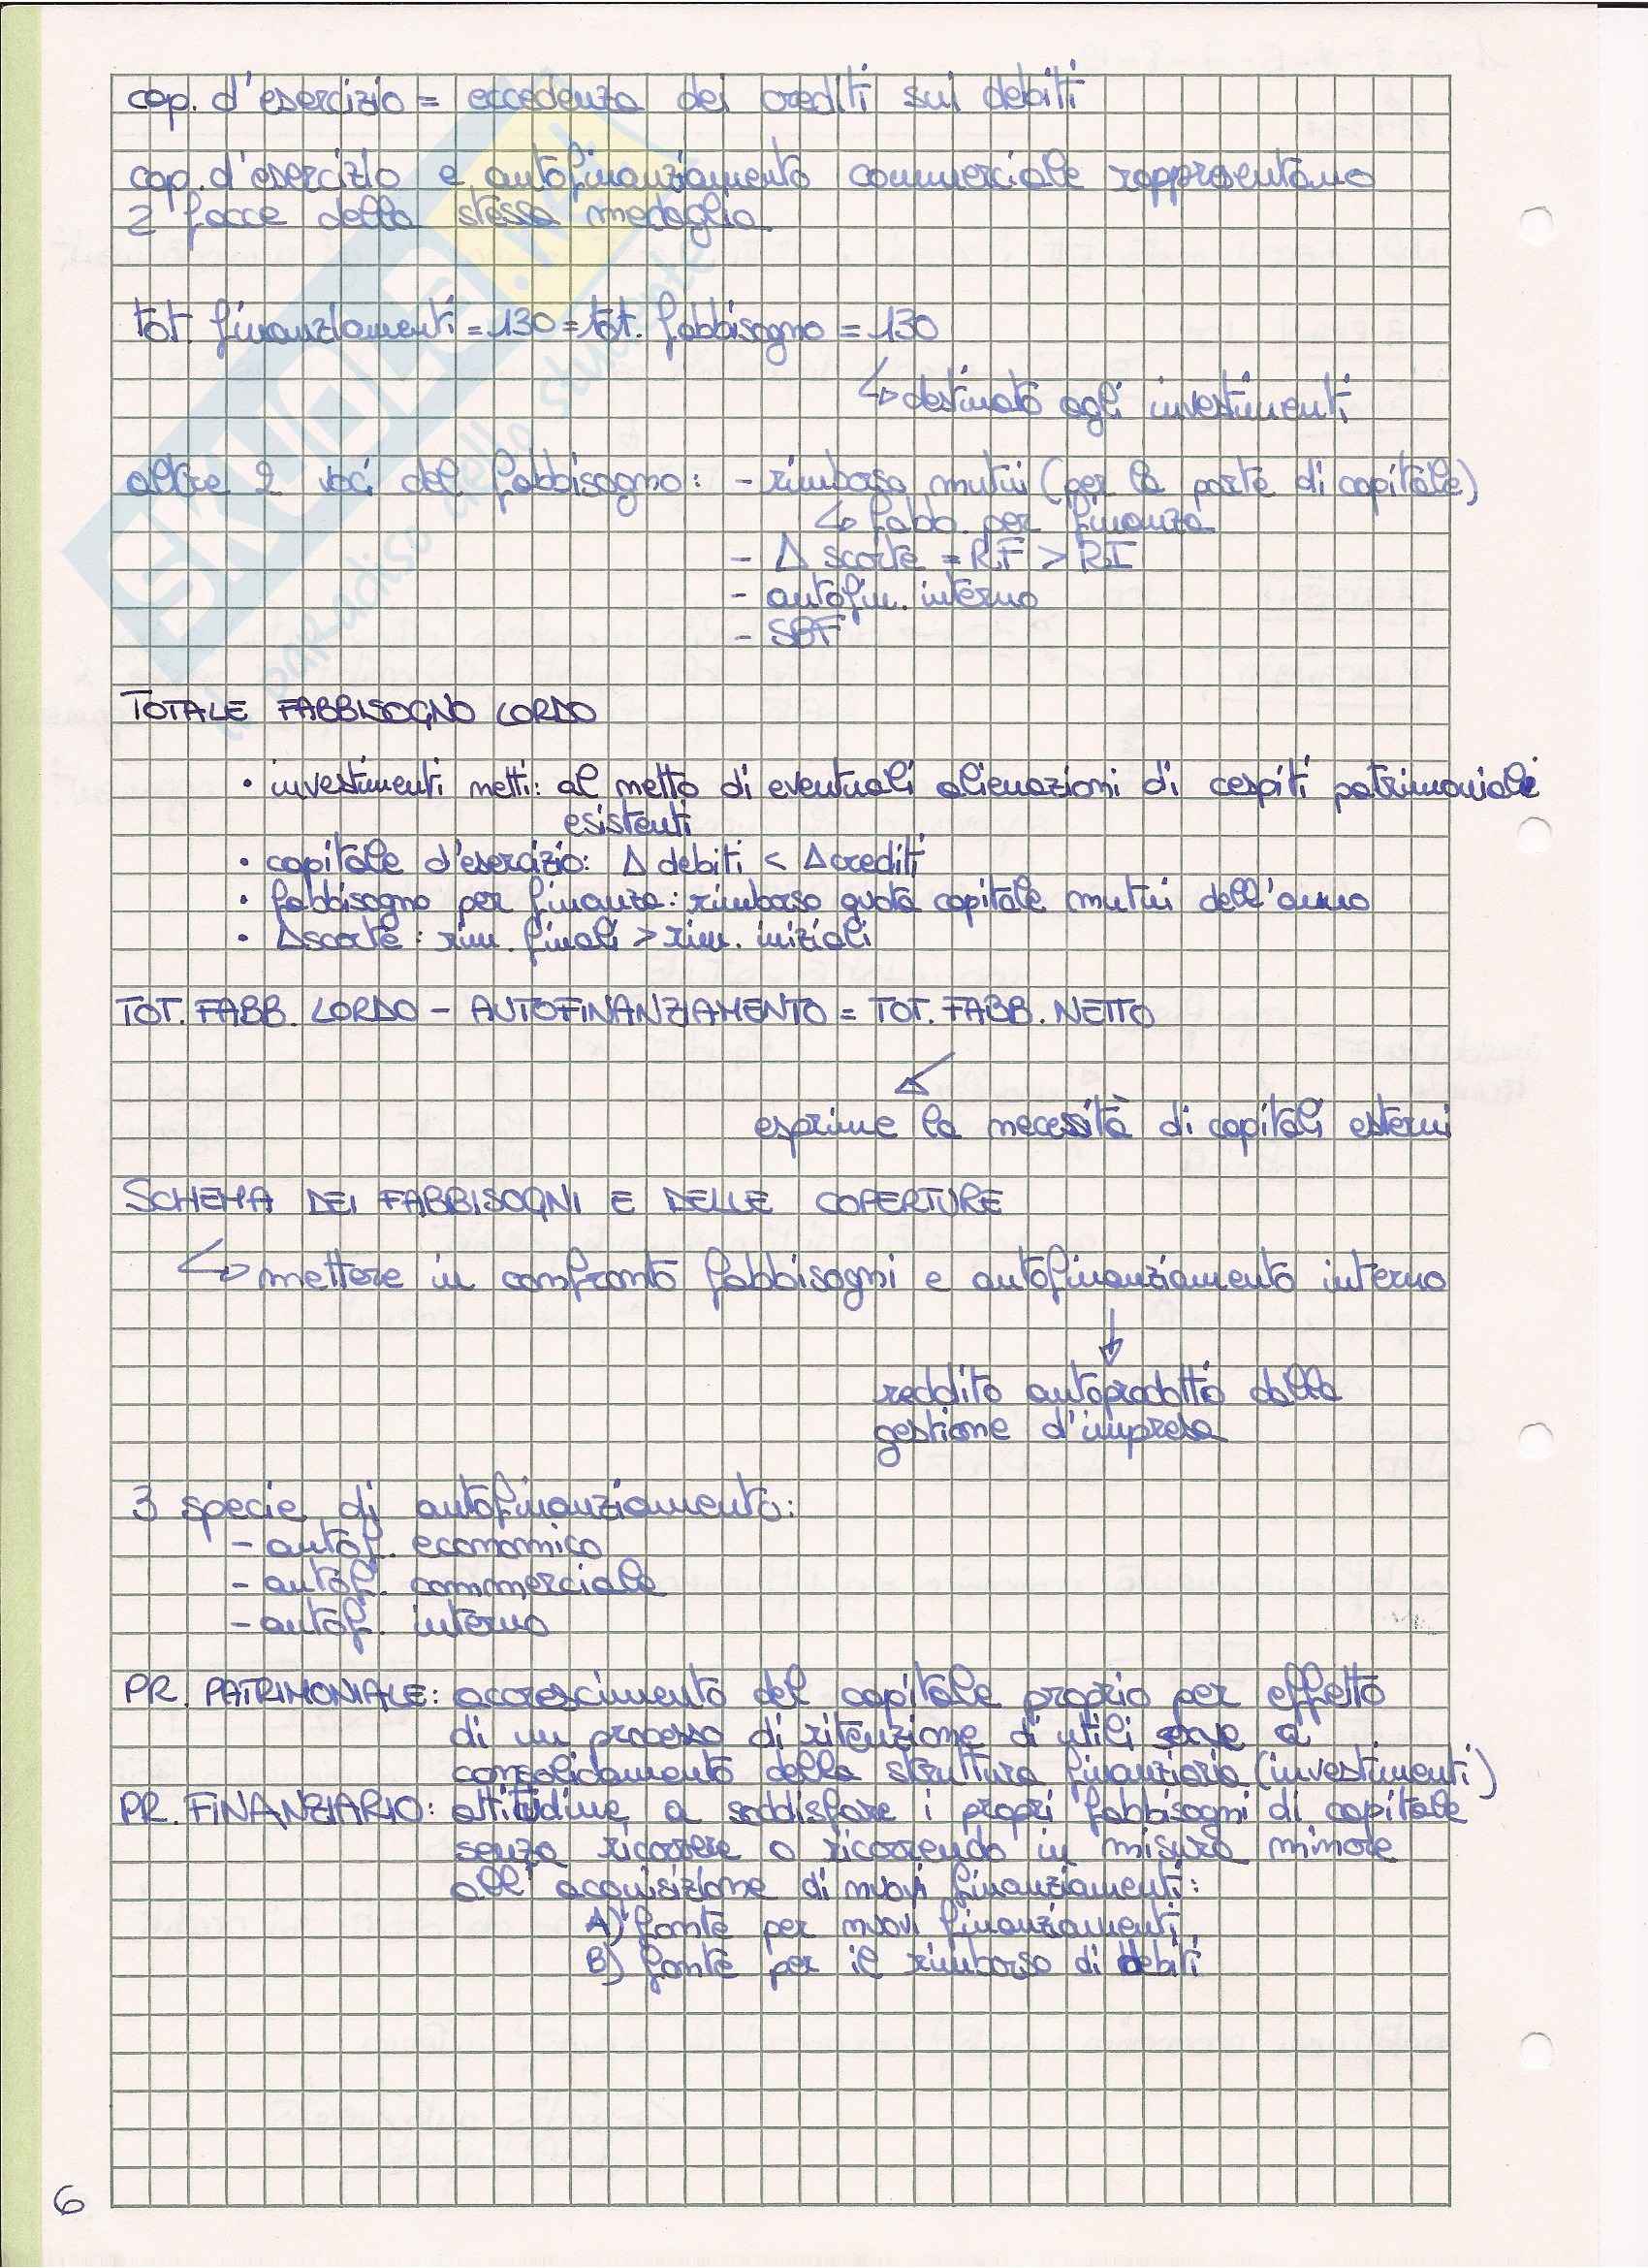 cap. d'esercizio = eccedenza dei crediti sui debiti
cap. d'esercizio e autofinanziamento commerciale rappresentano
2 facce della stessa medaglia
tot. finanziamenti = 130 = tot. fabbisogno = 130
↳ destinato agli investimenti
altre 2 voci del fabbisogno: - rimborso mutui (per la parte di capitale)
↳ fabb. per finanza
- Δ scorte = RF > RI
- autofin. interno
- SBF
TOTALE FABBISOGNO LORDO
• investimenti netti: al netto di eventuali alienazioni di cespiti patrimoniali
esistenti
• capitale d'esercizio: Δ debiti < Δ crediti
• fabbisogno per finanza: rimborso quota capitale mutui dell'anno
• Δ scorte: rim. finali > rim. iniziali
TOT. FABB. LORDO - AUTOFINANZIAMENTO = TOT. FABB. NETTO
esprime la necessità di capitali esterni
SCHEMA DEI FABBISOGNI E DELLE COPERTURE
↳ mettere in confronto fabbisogni e autofinanziamento interno
↓
reddito autoprodotto dalla
gestione d'impresa
3 specie di autofinanziamento:
- autof. economico
- autof. commerciale
- autof. interno
PR. PATRIMONIALE: accrescimento del capitale proprio per effetto
di un processo di ritenzione di utili serve a
consolidamento della struttura finanziaria (investimenti)
PR. FINANZIARIO: attitudine a soddisfare i propri fabbisogni di capitale
senza ricorrere o ricorrendo in misura minore
all'acquisizione di nuovi finanziamenti:
A) fonte per nuovi finanziamenti
B) fonte per il rimborso di debiti
6
SKUOLA.net
il paradiso dello studente